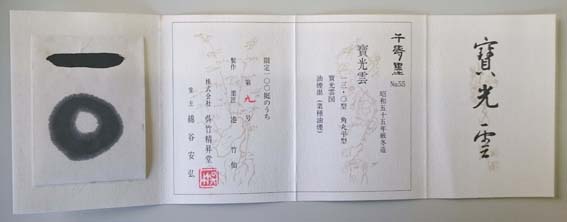 寳光雲
千寿墨
No.55
昭和五十五年厳冬造
寳光雲
一三・〇型 角丸平型
寳光雲図
油煙墨(菜種油煙)
限定一〇〇挺のうち
第九号
製作 墨匠 港 竹仙
株式会社 呉竹精昇堂
墨主 綿谷安弘